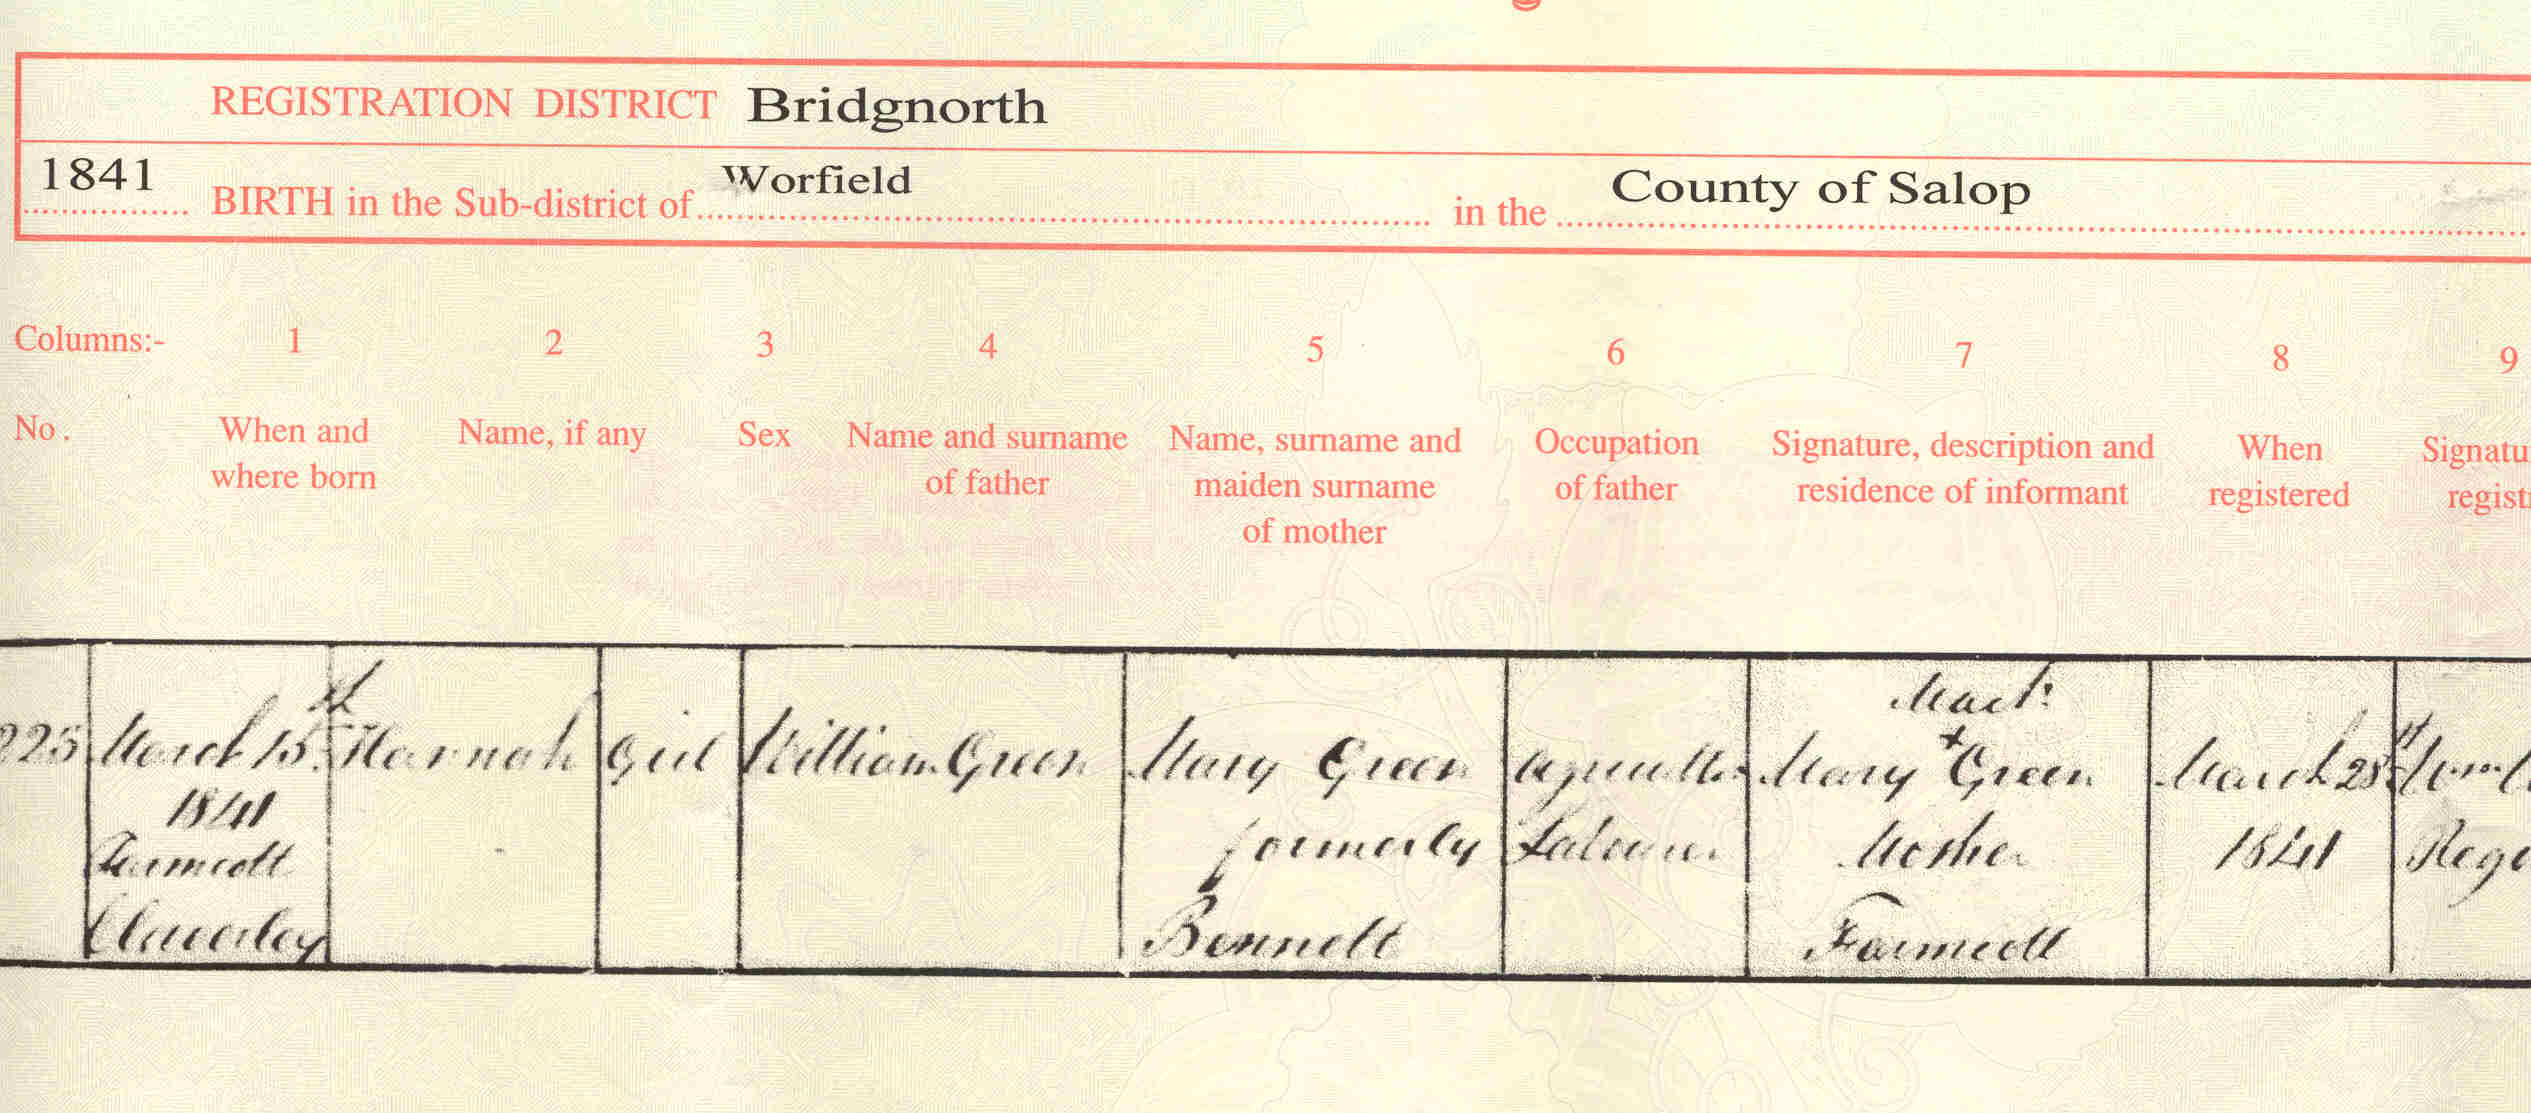 REGISTRATION DISTRICT Bridgnorth
1841 BIRTH in the Sub-district of Worfield in the County of Salop
Columns:- 1 2 3 4 5 6 7 8 9
No. When and where born Name, if any Sex Name and surname of father Name, surname and maiden surname of mother Occupation of father Signature, description and residence of informant When registered Signatu registr
225 March 15th 1841 Farmcott Claverley
Hannah
Girl
William Green
Mary Green formerly Bennett
Labourer
Mark
Mary + Green
Mother
Farmcott
March 28th
1841
Wm
Regi